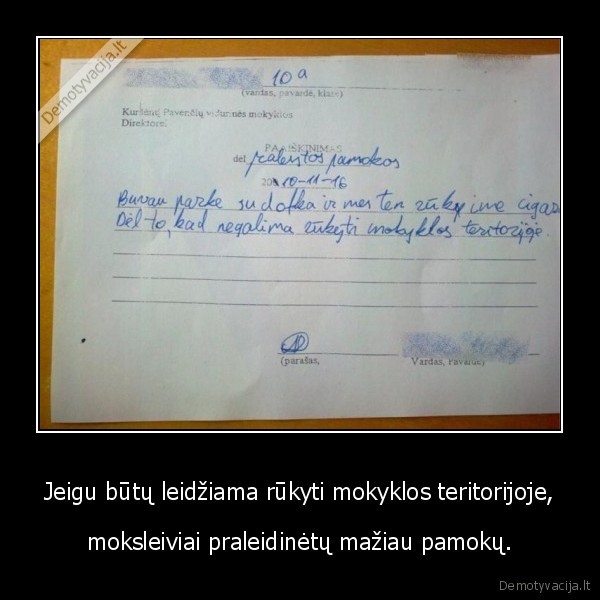 Demotyvacija.lt
10 a
(vardas, pavardė, klasė)
Kuršėnų Pavenčių vidurinės mokyklos
Direktorei.
PAAIŠKINIMAS
dėl praleistos pamokos
2010-11-16
Buvau parke su dofka ir mes ten rūkėme cigar
Dėl to, kad negalima rūkyti mokyklos teritorijoje.
(parašas,
Vardas, Pavardė)
Jeigu būtų leidžiama rūkyti mokyklos teritorijoje,
moksleiviai praleidinėtų mažiau pamokų.
Demotyvacija.lt